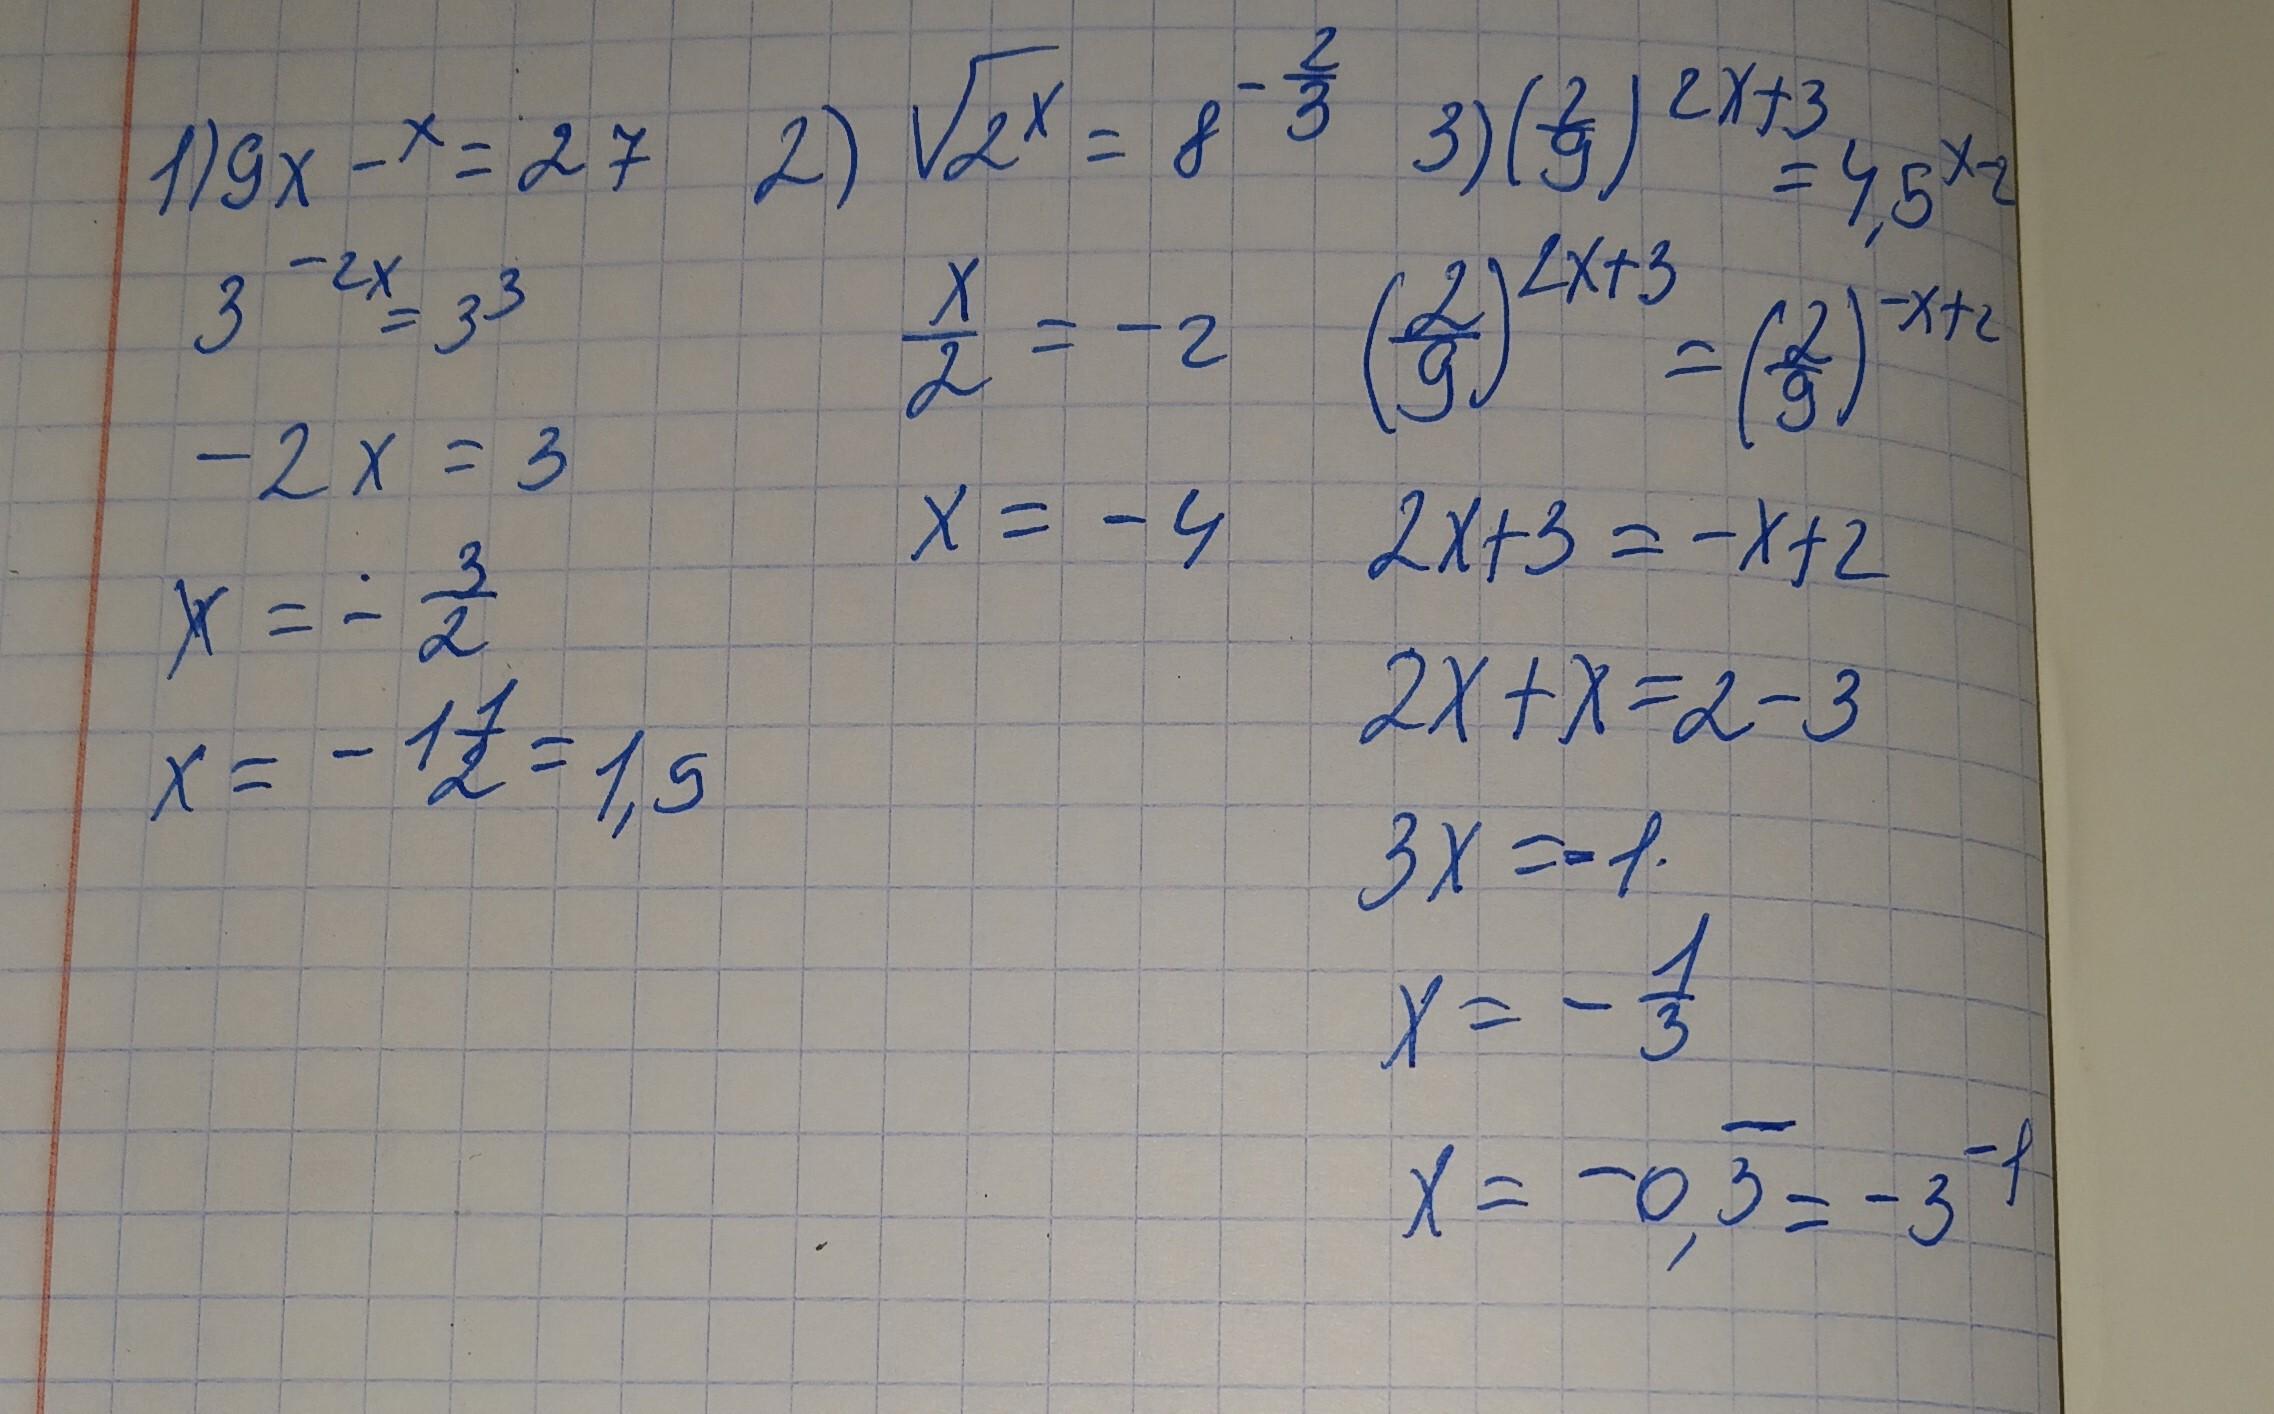 1) 9x -ˣ = 27
3^{-2x} = 3^3
-2x = 3
x = - 3/2
x = - 1 1/2 = 1,5
2) √(2^x) = 8^{-2/3}
x/2 = -2
x = -4
3) (2/9)^{2x+3} = 4,5^{x-2}
(2/9)^{2x+3} = (2/9)^{-x+2}
2x+3 = -x+2
2x+x = 2-3
3x = -1.
x = - 1/3
x = -0,3̅ = -3^{-1}